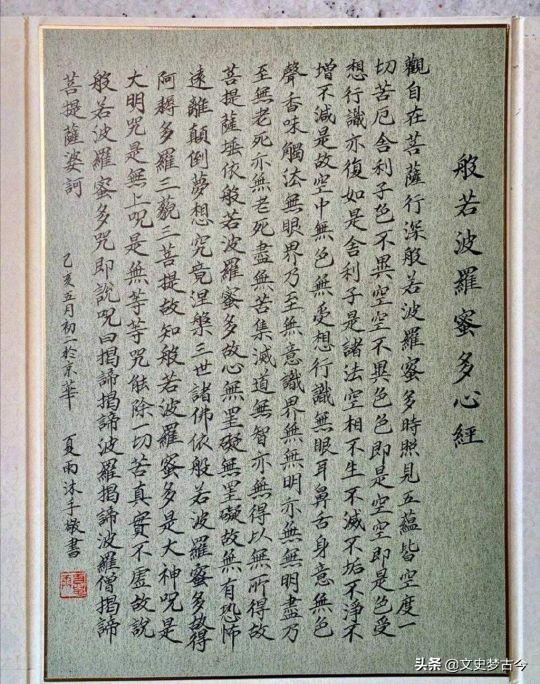 般若波羅蜜多心經
觀自在菩薩行深般若波羅蜜多時照見五蘊皆空度一
切苦厄舍利子色不異空空不異色色即是空空即是色受
想行識亦復如是舍利子是諸法空相不生不滅不垢不淨不
增不減是故空中無色無受想行識無眼耳鼻舌身意無色
聲香味觸法無眼界乃至無意識界無無明亦無無明盡乃
至無老死亦無老死盡無苦集滅道無智亦無得以無所得故
菩提薩埵依般若波羅蜜多故心無罣礙無罣礙故無有恐怖
遠離顛倒夢想究竟涅槃三世諸佛依般若波羅蜜多故得
阿耨多羅三藐三菩提故知般若波羅蜜多是大神咒是
大明咒是無上咒是無等等咒能除一切苦真實不虛故說
般若波羅蜜多咒即說咒曰揭諦揭諦波羅揭諦波羅僧揭諦
菩提薩婆訶
己亥五月初一於京華 夏雨沐手敬書
头条 @文史梦古今